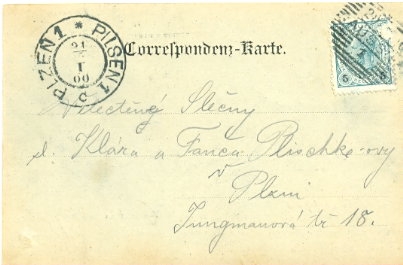 PLZEN 1 * PILSEN 1
21
I
00
Correspondenz-Karte.
5 5
Slečny
sl. Klára a Fanča Plischke-ovy
v Plzni
Jungmanová tř 18.